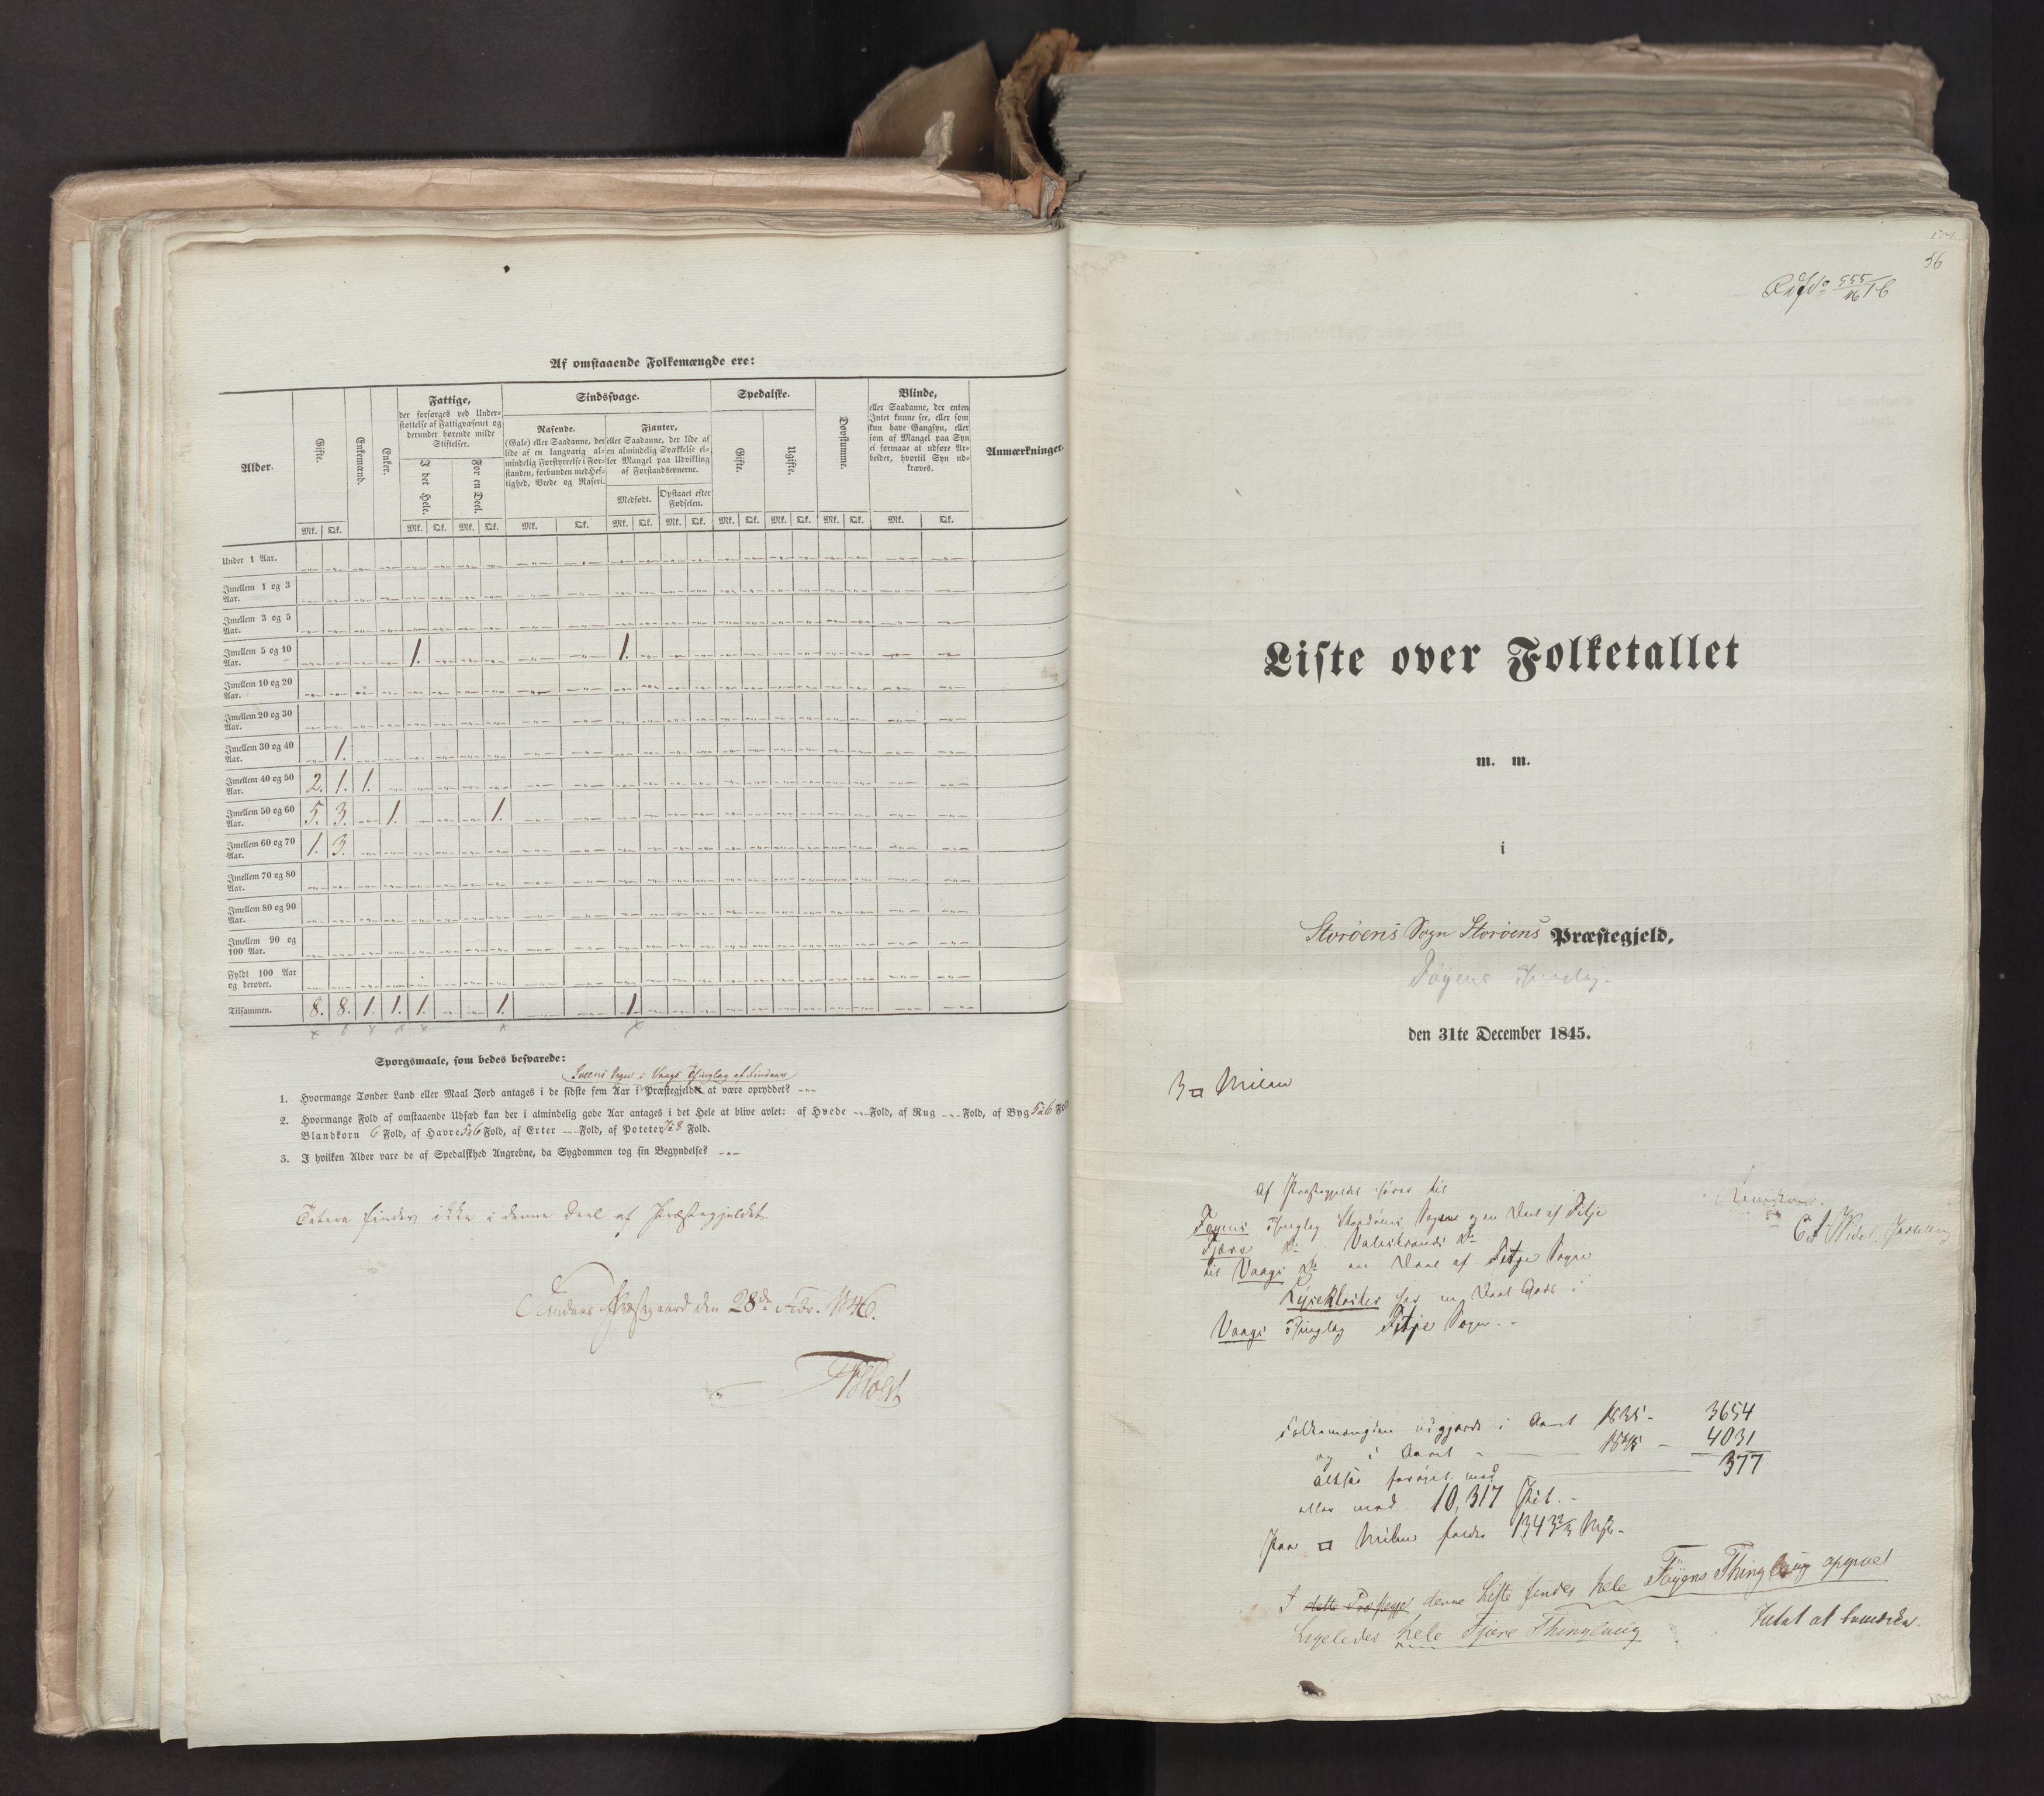 Af omstaaende Folkemængde ere:
Alder.
Gifte.
Enkemænd.
Enker.
Fattige,
der forsørges ved Under-
støttelse af Fattigvæsenet og
derunder hørende milde
Stiftelser.
I det Hele.
For en Deel.
Sindssvage.
Rasende.
(Gale) eller Saadanne, der
lide af en langvarig al-
mindelig Forstyrrelse i For-
standen, forbunden med Hef-
tighed, Vrede og Raseri.
Fianter,
eller Saadanne, der lide af
en almindelig Svækkelse el-
ler Mangel paa Udvikling
af Forstandsevnerne.
Medfødt.
Opstaaet efter
Fødselen.
Spedalske.
Gifte.
Ugifte.
Døvstumme.
Blinde,
eller Saadanne, der enten
Intet kunne see, eller som
kun have Gangsyn, eller
som af Mangel paa Syn
ei formaae at udføre Ar-
beider, hvortil Syn ud-
kræves.
Anmærkninger.
Mk. Qk. Mk. Qk. Mk. Qk. Mk. Qk. Mk. Qk. Mk. Qk. Mk. Qk. Mk. Qk. Mk. Qk. Mk. Qk.
Under 1 Aar.
Imellem 1 og 3
Aar.
Imellem 3 og 5
Aar.
Imellem 5 og 10
Aar. 1. 1.
Imellem 10 og 20
Aar.
Imellem 20 og 30
Aar.
Imellem 30 og 40
Aar. 1.
Imellem 40 og 50
Aar. 2. 1. 1.
Imellem 50 og 60
Aar. 5. 3. 1. 1.
Imellem 60 og 70
Aar. 1. 3.
Imellem 70 og 80
Aar.
Imellem 80 og 90
Aar.
Imellem 90 og
100 Aar.
Fyldt 100 Aar
og derover.
Tilsammen. 8. 8. 1. 1. 1. 1. 1.
Spørgsmaale, som bedes besvarede:
Sogn i Vaags Thinglag af Lindaas
1. Hvormange Tønder Land eller Maal Jord antages i de sidste fem Aar i Præstegjeldet at være opryddet?
2. Hvormange Fold af omstaaende Udsæd kan der i almindelig gode Aar antages i det Hele at blive avlet: af Hvede Fold, af Rug Fold, af Byg 5 à 6 Fold
Blandkorn 6 Fold, af Havre 5 à 6 Fold, af Erter Fold, af Poteter 7 à 8 Fold.
3. I hvilken Alder vare de af Spedalskhed Angrebne, da Sygdommen tog sin Begyndelse?
Tatere findes ikke i denne Deel af Præstegjeldet
Lindaas Præstegaard den 28de Febr. 1846.
56
Liste over Folketallet
m. m.
i
Storøens Sogn Storøens Præstegjeld,
Føyens Thinglag.
den 31te December 1845.
3 □ Miile
Af Præstegjeldet hører til
Føyens Thinglag Storøens Sogn og en Deel af Fitje
Fjære do Valestrands do
til Vaags do en Deel af Fitje Sogn
Lysekloster har en Deel Gods i
Vaags Thinglag Fitje Sogn.
Folkemængden udgjorde i Aaret 1835 - 3654
og i Aaret 1845 - 4031
altsaa forøget med 377
eller med 10,317 Pct.
Paa □ Milen falder 1343 2/3 Msk.
I dette Præstegj denne Liste findes hele Føyens Thinglaug opgivet
Ligeledes hele Fjære Thinglaug
Intet at bemærke.